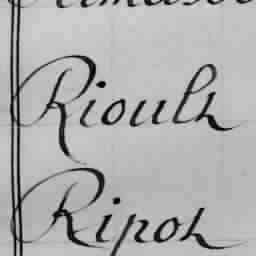 Rioult
Ripot